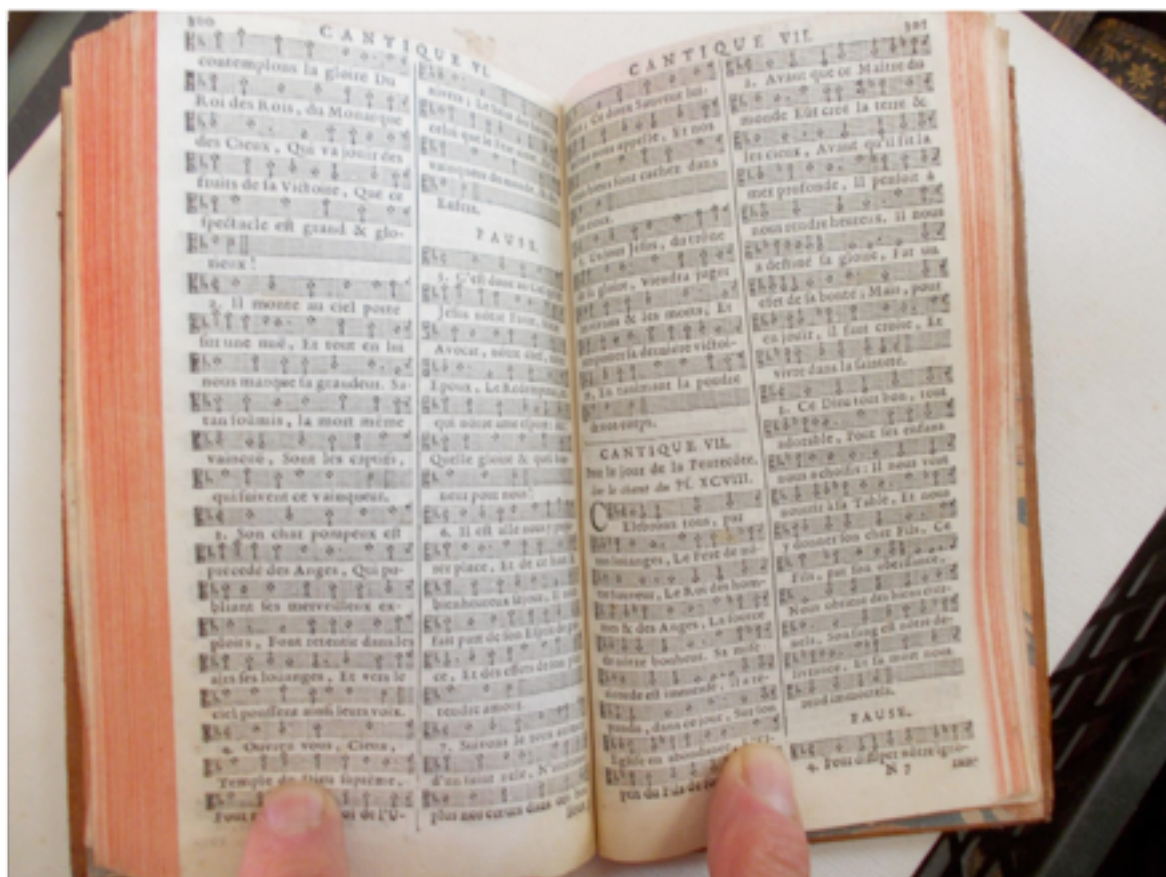 300
CANTIQUE VI.
contemplons la gloire Du
Roi des Rois, du Monarque
des Cieux, Qui va jouïr des
fruits de sa Victoire, Que ce
spectacle est grand & glo-
rieux!
2. Il monte au ciel porté
sur une nuë, Et tout en lui
nous marque sa grandeur. Sa-
tan soûmis, la mort même
vaincuë, Sont les captifs,
qui suivent ce vainqueur.
3. Son char pompeux est
précedé des Anges, Qui pu-
bliant ses merveilleux ex-
ploits, Font retentir dans les
airs ses louanges, Et vers le
ciel poussent aussi leurs voix.
4. Ouvrez vous, Cieux,
Temple de Dieu suprême,
de l'U-
nivers; Le
celui que le
vainqueur du monde,
Enfers.
PAUSE.
5. C'est donc au
Jesus nôtre
Avocat, nôtre chef,
Epoux, Le Redempteur,
qui nôtre ame
Quelle gloire & quel
pour nous!
6. Il est allé nous
place, Et de ce
bienheureux séjour, Il
fait part de son Esprit
ce, Et des effets de son
tendre amour.
7. Suivons le
d'un saint zele, N'
plus nos cœurs dans
CANTIQUE VII.
301
Ce doux Sauveur lui-
nous appelle, Et nos
sont cachez dans
les cieux.
Jesus, du trône
de sa gloire, Viendra juger
vivans & les morts, Et
la derniére victoi-
re, En ranimant la poudre
de nos corps.
CANTIQUE VII.
Pour le jour de la Pentecôte.
Sur le chant du Ps. XCVIII.
CElebrons tous, par
nos louanges, La Fête de nô-
tre Sauveur, Le Roi des hom-
mes & des Anges, La source
de nôtre bonheur. Sa
est immense, Il a ré-
pandu, dans ce jour, Sur son
Eglise en abondance,
2. Avant que ce Maître du
monde Eût créé la terre &
les cieux, Avant qu'il fît la
mer profonde, Il pensoit à
nous rendre heureux. Il nous
a destiné sa gloire, Par un
effet de sa bonté; Mais, pour
en jouïr, il faut croire, Et
vivre dans la sainteté.
3. Ce Dieu tout bon, tout
adorable, Pour ses enfans
nous a choisis: Il nous veut
nourrir à sa Table, Et nous
y donner son cher Fils. Ce
Fils, par son obeïssance,
Nous obtient des biens éter-
nels. Son sang est nôtre dé-
livrance, Et sa mort nous
rend immortels.
PAUSE.
4. Pour dissiper nôtre igno-
N 7